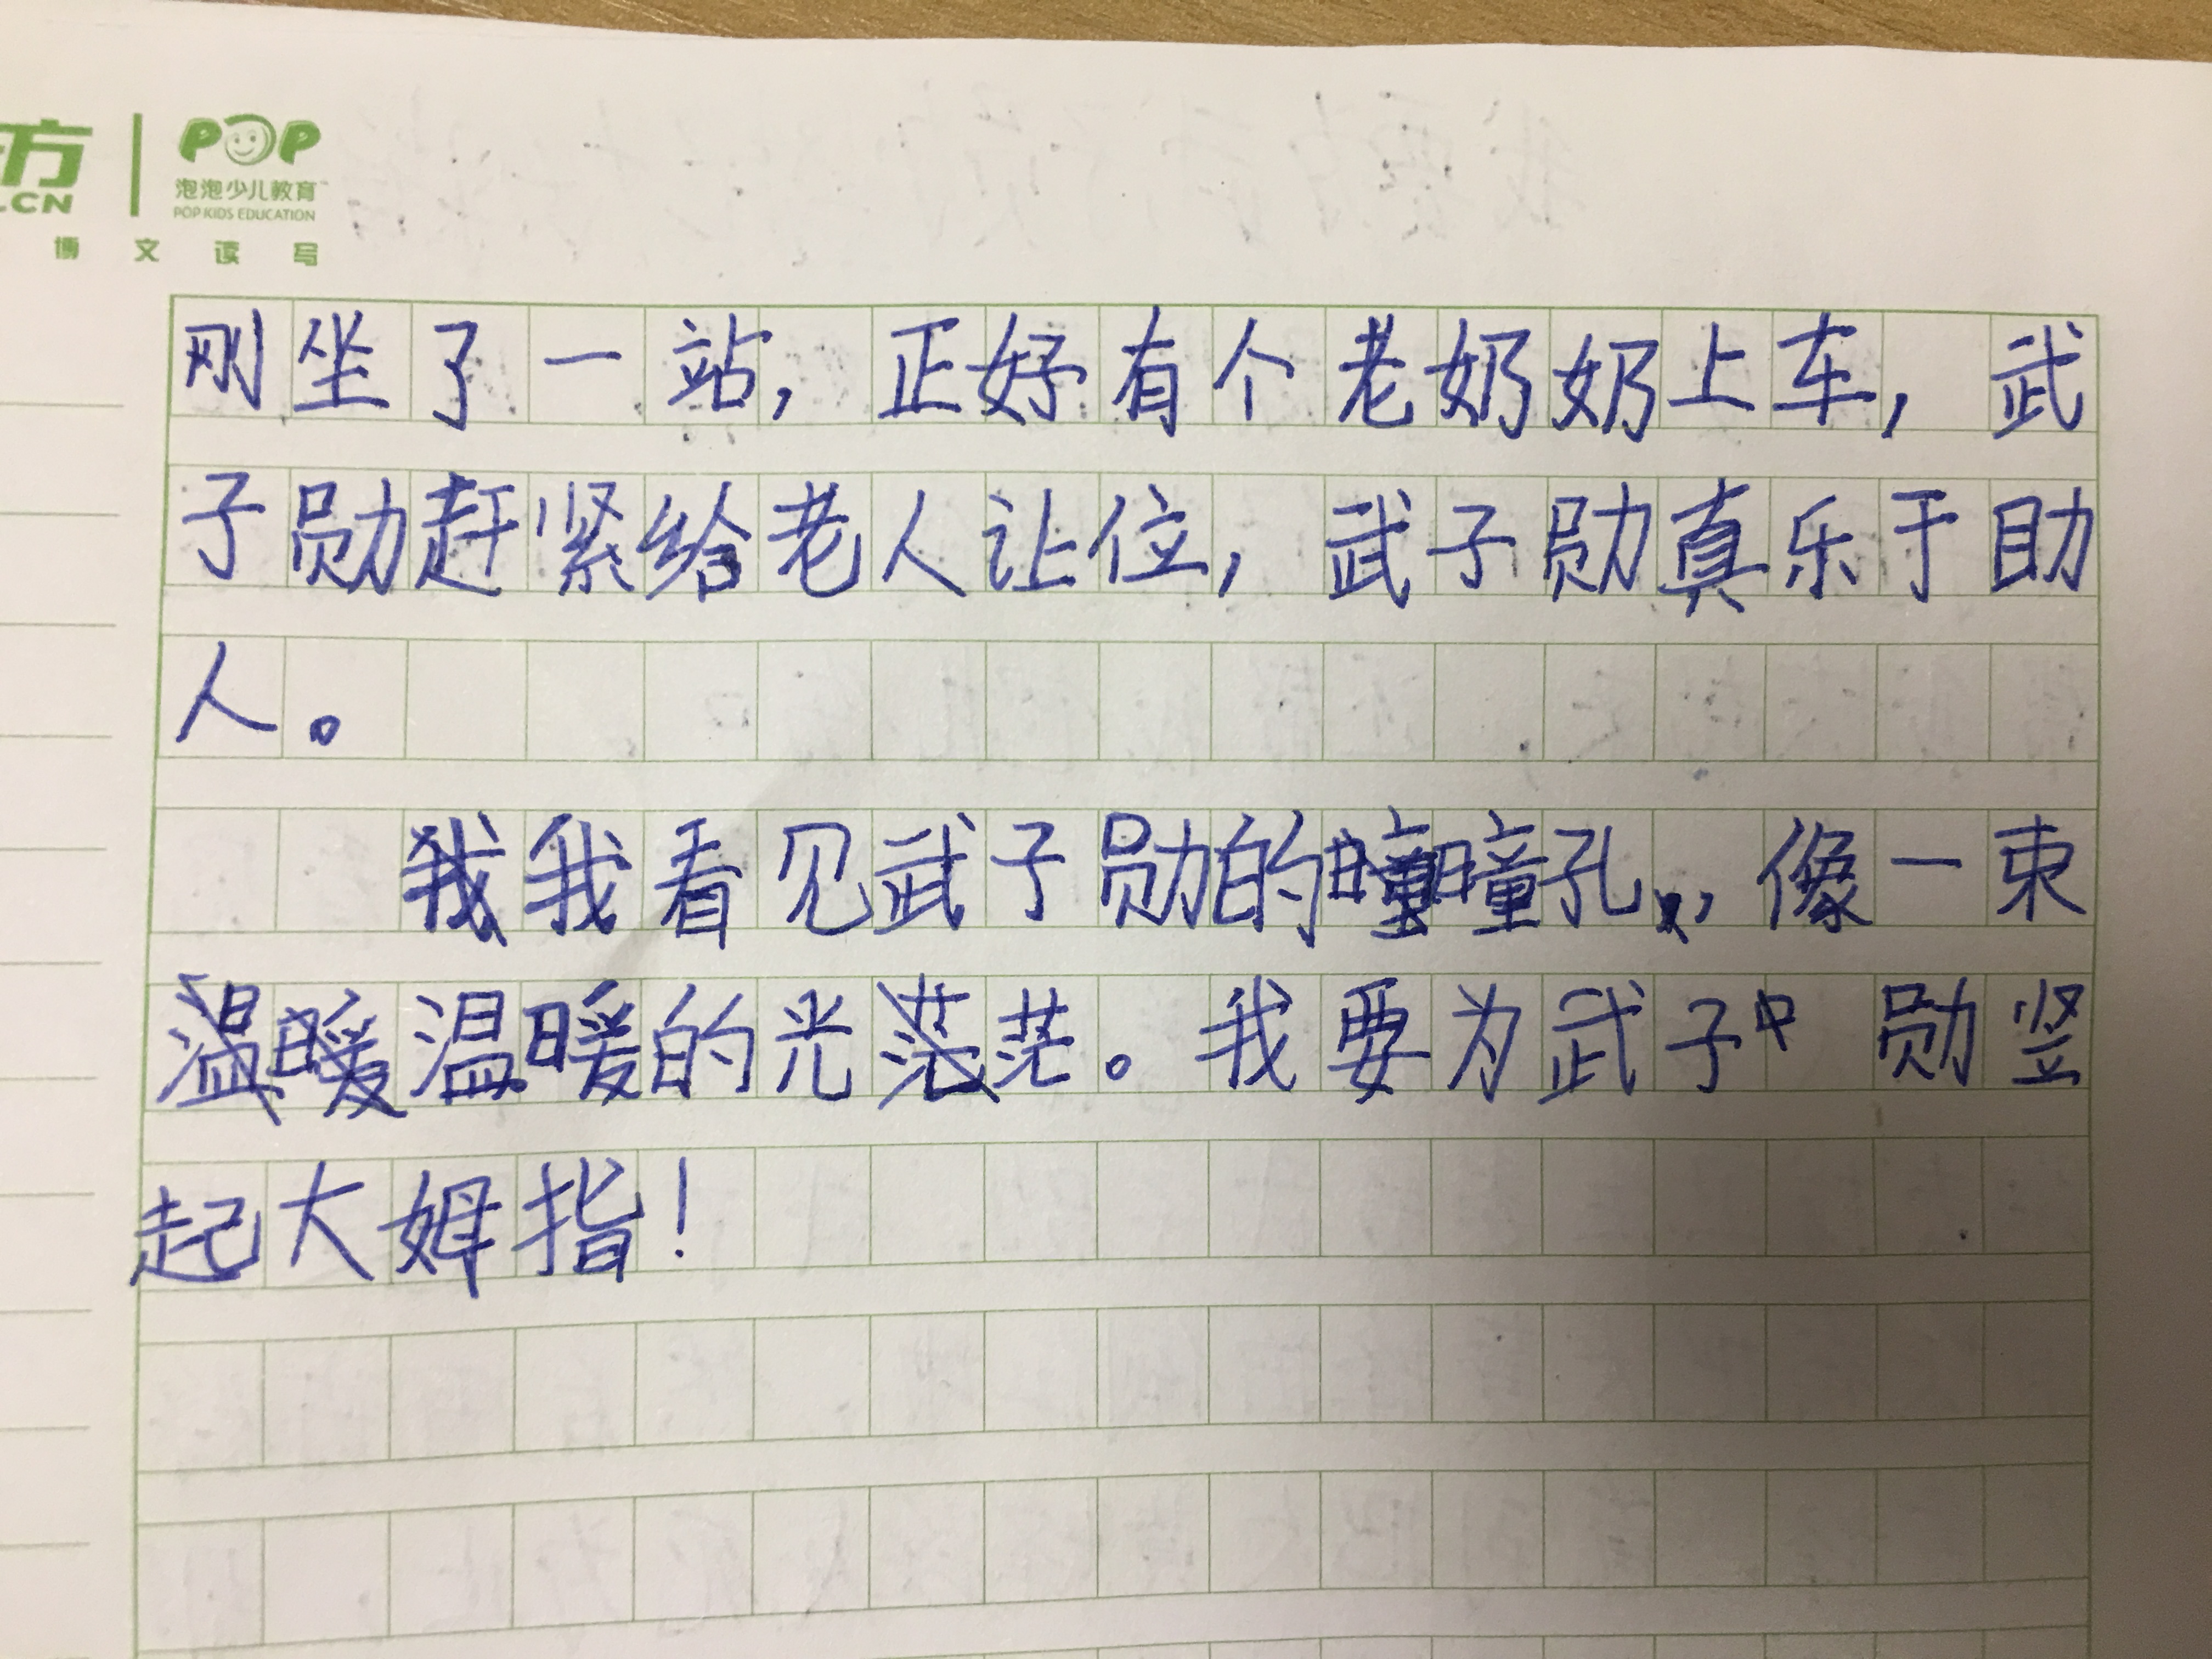 方
.CN
POP
泡泡少儿教育
POP KIDS EDUCATION
博文读写
刚坐了一站，正好有个老奶奶上车，武
子勋赶紧给老人让位，武子勋真乐于助
人。
我看见武子勋的瞳孔，像一束
温暖的光茫。我要为武子中勋竖
起大姆指！